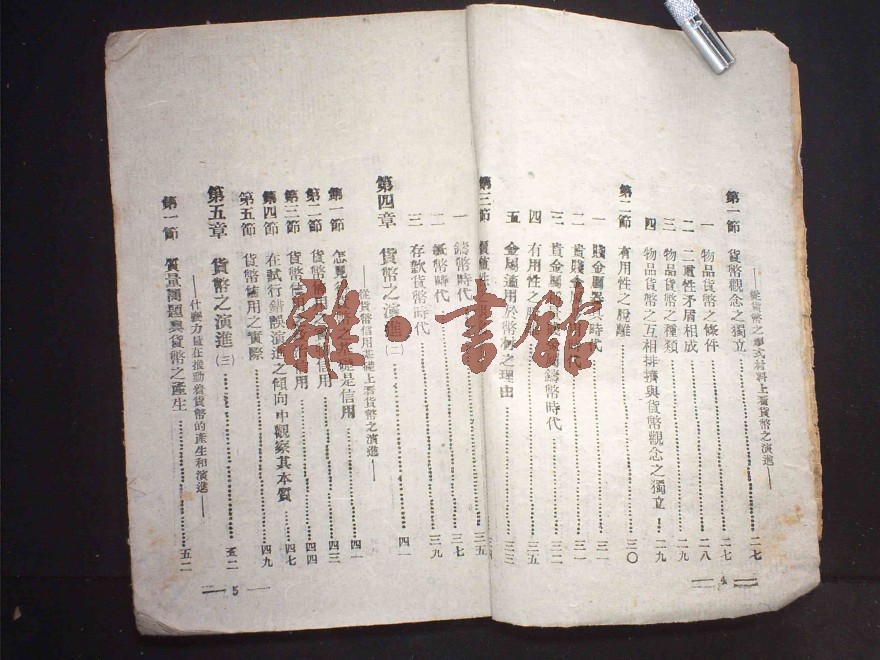 ——從貨幣之形式材料上看貨幣之演進——
第一節 貨幣觀念之獨立……二七
一 物品貨幣之條件……二七
二 二重性矛盾相成……二八
三 物品貨幣之種類……二九
四 物品貨幣之互相排擠與貨幣觀念之獨立……二九
第二節 有用性之脫離……三〇
一 賤金屬 時代……三一
二 貴賤金屬 代……三一
三 貴金屬 鑄幣時代……三二
四 有用性之 ……三五
五 金屬適用於幣材之理由……三三
第三節 價值性……三五
一 鑄幣時代……三七
二 紙幣時代……三九
三 存款貨幣時代
第四章 貨幣之演進(二)……四一
——從貨幣信用基礎上看貨幣之演進——
第一節 怎見得 之基礎是信用……四一
第二節 貨幣信用 信用……四四
第三節 貨幣信用之 信用……四七
第四節 在試行錯誤演進之傾向中觀察其本質……四九
第五節 貨幣信用之實際
第五章 貨幣之演進(三)……五二
——什麼力量在推動着貨幣的產生和演進——
第一節 質量問題與貨幣之產生……五二
4
5
雜·書館